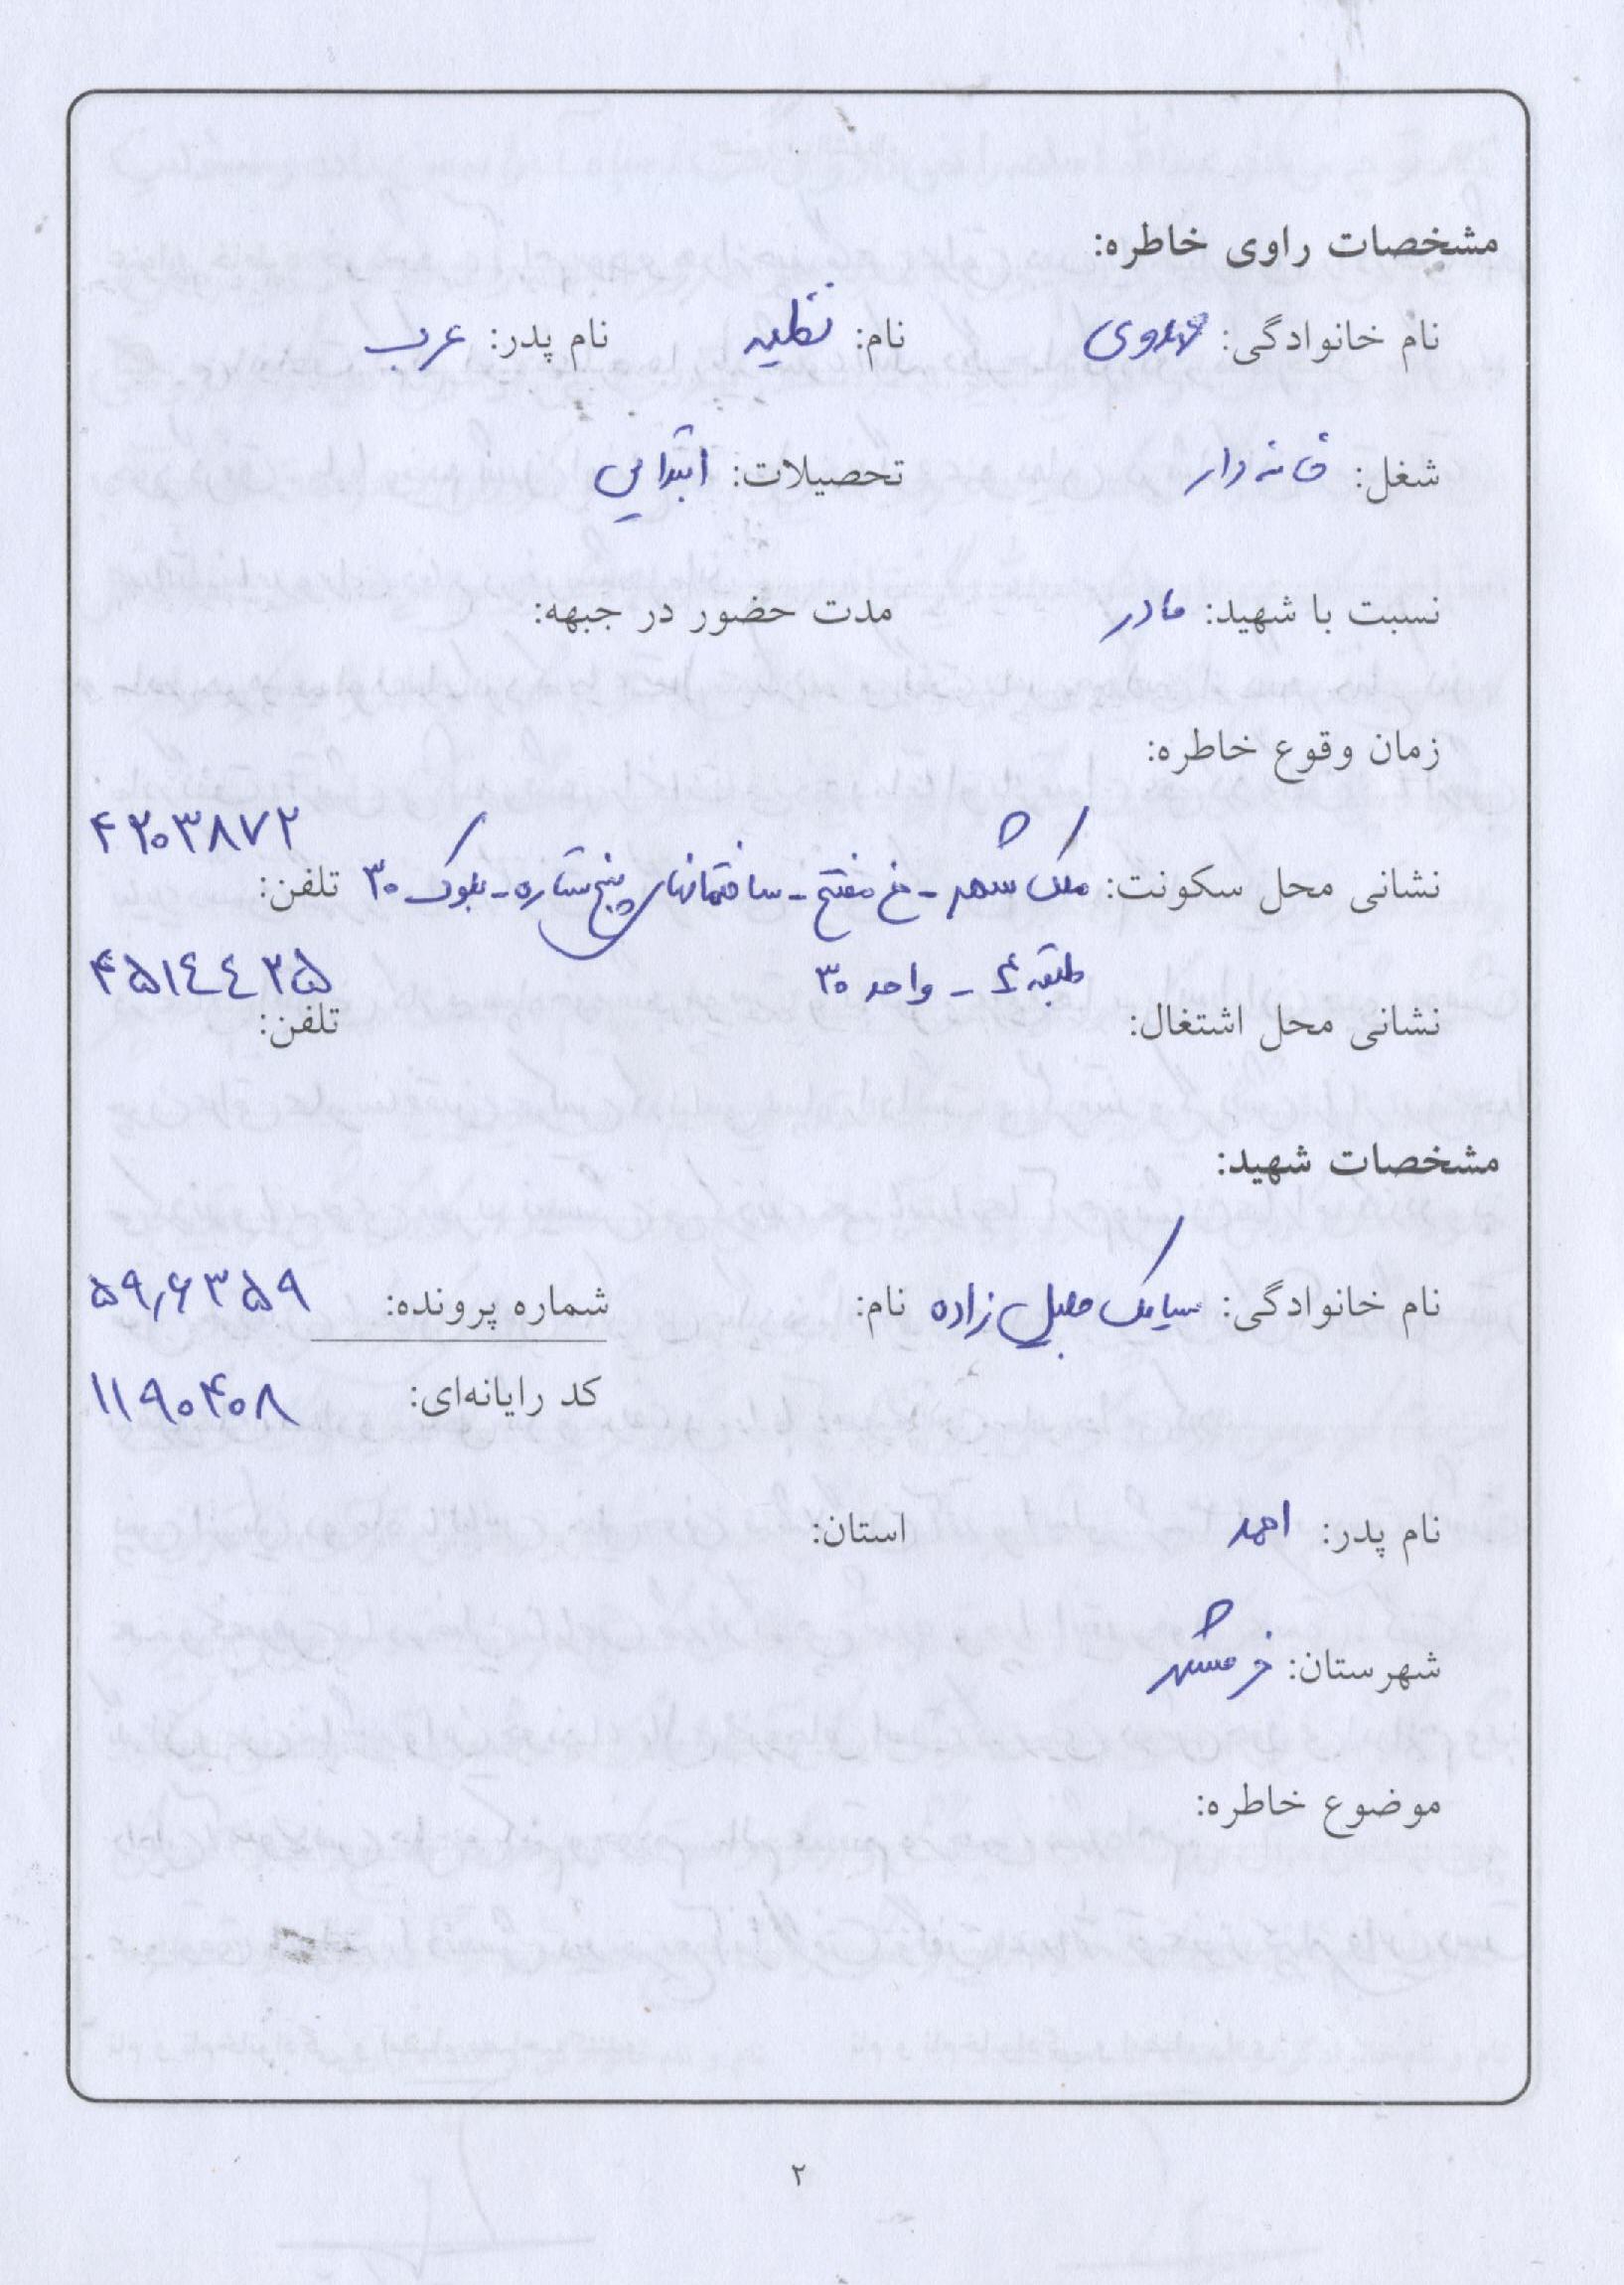 مشخصات راوی خاطره:
نام خانوادگی: مهدوی نام: نظیمه نام پدر: عرب
شغل: خانه دار تحصیلات: ابتدایی
نسبت با شهید: مادر مدت حضور در جبهه:
زمان وقوع خاطره:
نشانی محل سکونت: ملک شهر - خ مفتح - ساختمانهای پنج ستاره - بلوک ۳۰ تلفن: ۴۲۰۳۸۷۲
طبقه ۴ - واحد ۳۰ ۴۵۱۴۴۲۵
نشانی محل اشتغال: تلفن:
مشخصات شهید:
نام خانوادگی: سیامک جلیل زاده نام: شماره پرونده: ۵۹٫۶۳۵۹
کد رایانه‌ای: ۱۱۹۰۴۰۸
نام پدر: احمد استان:
شهرستان: خرمشهر
موضوع خاطره:
۲